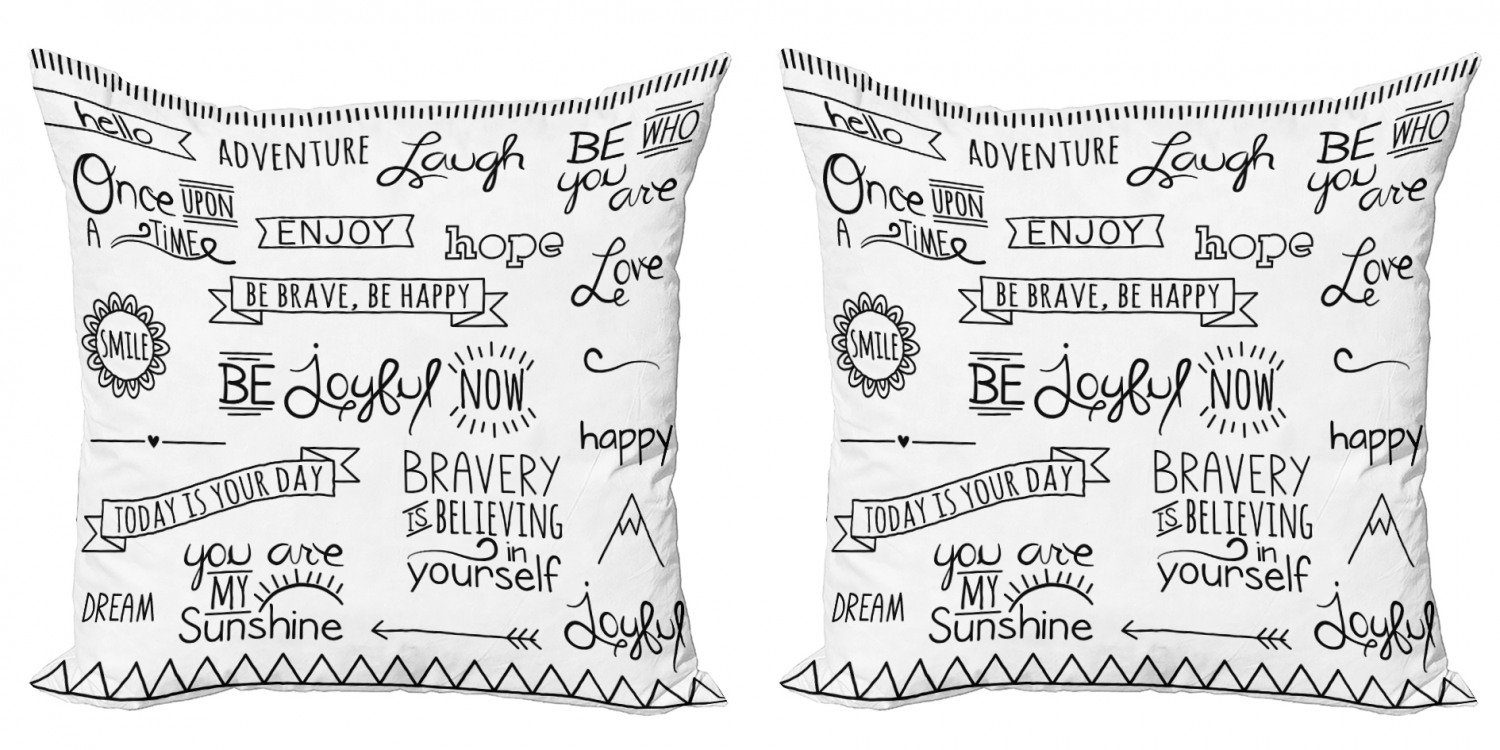 hello
ADVENTURE
Laugh
BE WHO
you are
Once UPON
A TIME
ENJOY
hope
Love
BE BRAVE, BE HAPPY
SMILE
BE Joyful NOW
happy
TODAY IS YOUR DAY
BRAVERY
IS BELIEVING
in
yourself
you are
MY
Sunshine
DREAM
Joyful
hello
ADVENTURE
Laugh
BE WHO
you are
Once UPON
A TIME
ENJOY
hope
Love
BE BRAVE, BE HAPPY
SMILE
BE Joyful NOW
happy
TODAY IS YOUR DAY
BRAVERY
IS BELIEVING
in
yourself
you are
MY
Sunshine
DREAM
Joyful